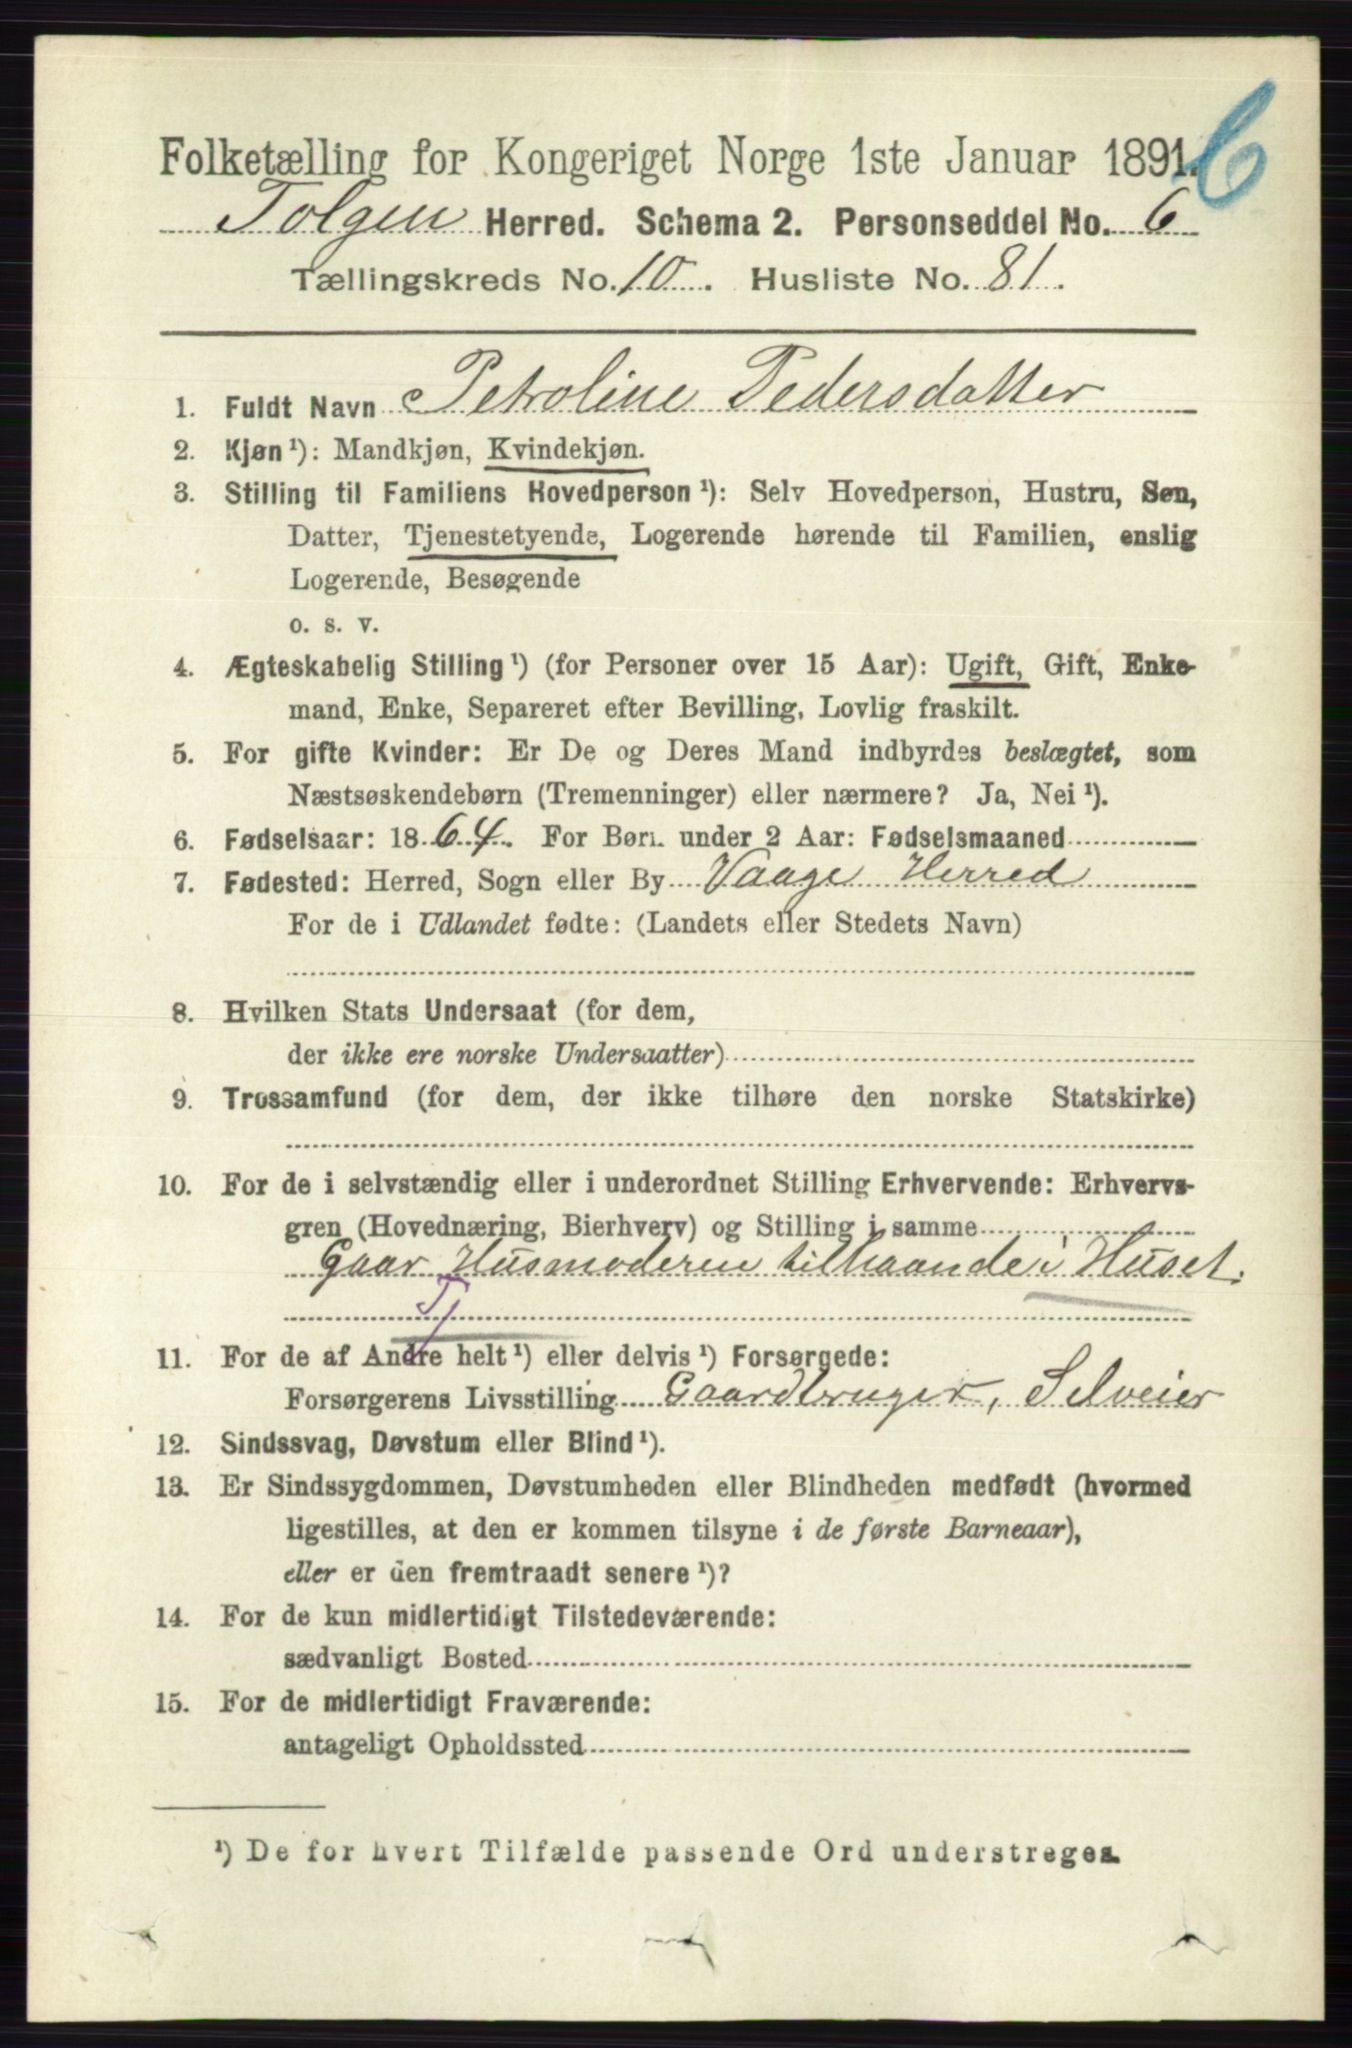 6
Folketælling for Kongeriget Norge 1ste Januar 1891.
Tolgen Herred. Schema 2. Personseddel No. 6
Tællingskreds No. 10. Husliste No. 81.
1. Fuldt Navn Petroline Pedersdatter
2. Kjøn ¹): Mandkjøn, Kvindekjøn.
3. Stilling til Familiens Hovedperson ¹): Selv Hovedperson, Hustru, Søn,
Datter, Tjenestetyende, Logerende hørende til Familien, enslig
Logerende, Besøgende
o. s. v.
4. Ægteskabelig Stilling ¹) (for Personer over 15 Aar): Ugift, Gift, Enke-
mand, Enke, Separeret efter Bevilling, Lovlig fraskilt.
5. For gifte Kvinder: Er De og Deres Mand indbyrdes beslægtet, som
Næstsøskendebørn (Tremenninger) eller nærmere? Ja, Nei ¹).
6. Fødselsaar: 1864. For Børn under 2 Aar: Fødselsmaaned
7. Fødested: Herred, Sogn eller By Vaage Herred
For de i Udlandet fødte: (Landets eller Stedets Navn)
8. Hvilken Stats Undersaat (for dem,
der ikke ere norske Undersaatter)
9. Trossamfund (for dem, der ikke tilhøre den norske Statskirke)
10. For de i selvstændig eller i underordnet Stilling Erhvervende: Erhvervs-
gren (Hovednæring, Bierhverv) og Stilling i samme
Gaar Husmoderen tilhaande i Huset.
Tj
11. For de af Andre helt ¹) eller delvis ¹) Forsørgede:
Forsørgerens Livsstilling Gaardbruger, Selveier
12. Sindssvag, Døvstum eller Blind ¹).
13. Er Sindssygdommen, Døvstumheden eller Blindheden medfødt (hvormed
ligestilles, at den er kommen tilsyne i de første Barneaar),
eller er den fremtraadt senere ¹)?
14. For de kun midlertidigt Tilstedeværende:
sædvanligt Bosted
15. For de midlertidigt Fraværende:
antageligt Opholdssted
¹) De for hvert Tilfælde passende Ord understreges.